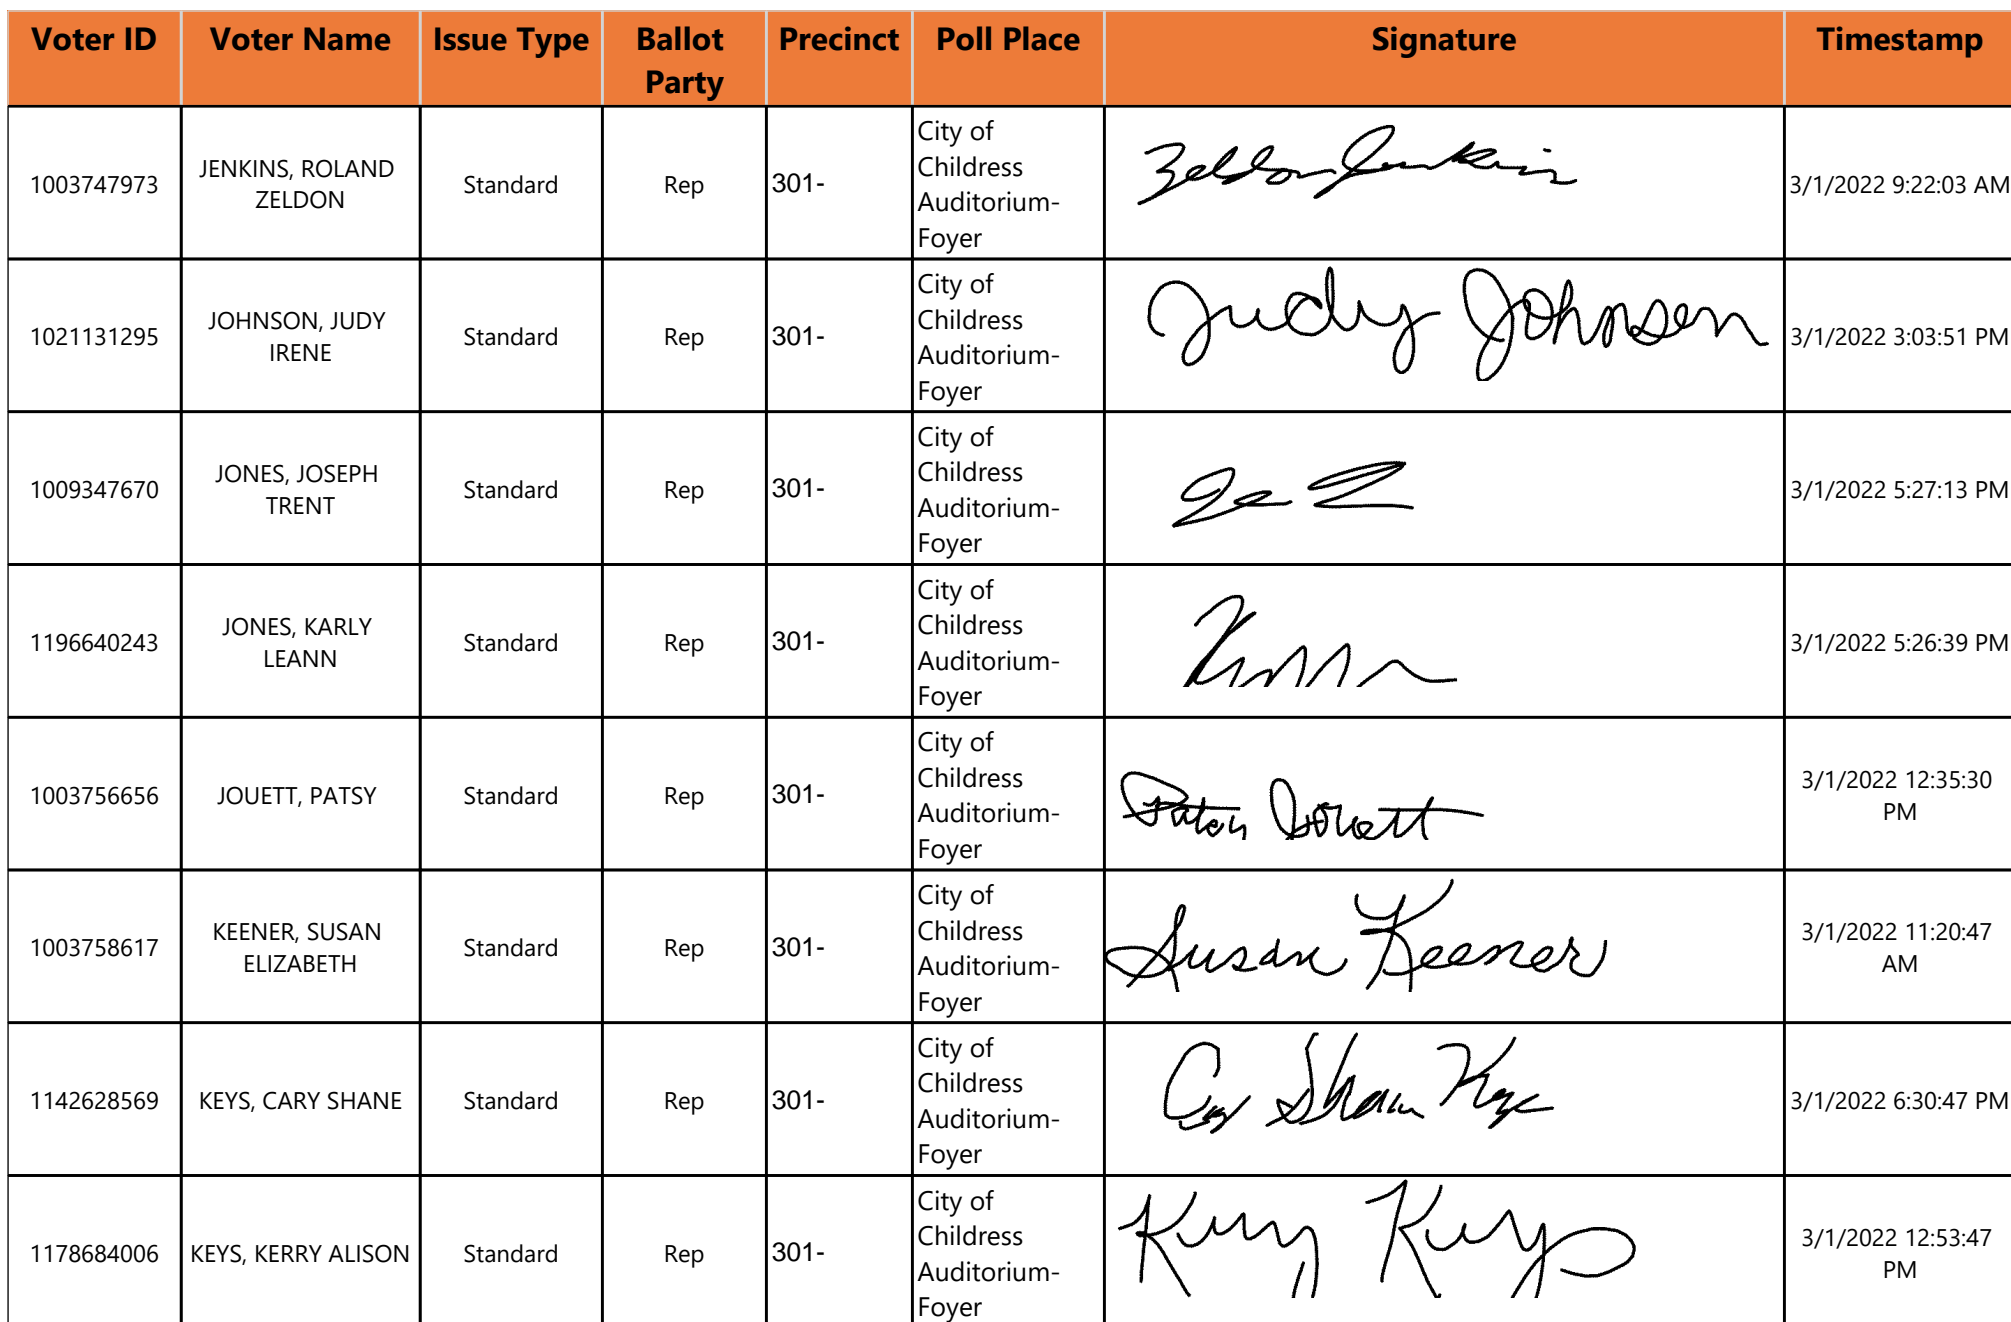 Voter ID Voter Name Issue Type Ballot Party Precinct Poll Place Signature Timestamp
1003747973 JENKINS, ROLAND ZELDON Standard Rep 301- City of Childress Auditorium-Foyer Zeldon Jenkins 3/1/2022 9:22:03 AM
1021131295 JOHNSON, JUDY IRENE Standard Rep 301- City of Childress Auditorium-Foyer Judy Johnson 3/1/2022 3:03:51 PM
1009347670 JONES, JOSEPH TRENT Standard Rep 301- City of Childress Auditorium-Foyer 3/1/2022 5:27:13 PM
1196640243 JONES, KARLY LEANN Standard Rep 301- City of Childress Auditorium-Foyer 3/1/2022 5:26:39 PM
1003756656 JOUETT, PATSY Standard Rep 301- City of Childress Auditorium-Foyer Patsy Jouett 3/1/2022 12:35:30 PM
1003758617 KEENER, SUSAN ELIZABETH Standard Rep 301- City of Childress Auditorium-Foyer Susan Keener 3/1/2022 11:20:47 AM
1142628569 KEYS, CARY SHANE Standard Rep 301- City of Childress Auditorium-Foyer Cary Shane Keys 3/1/2022 6:30:47 PM
1178684006 KEYS, KERRY ALISON Standard Rep 301- City of Childress Auditorium-Foyer Kerry Keys 3/1/2022 12:53:47 PM